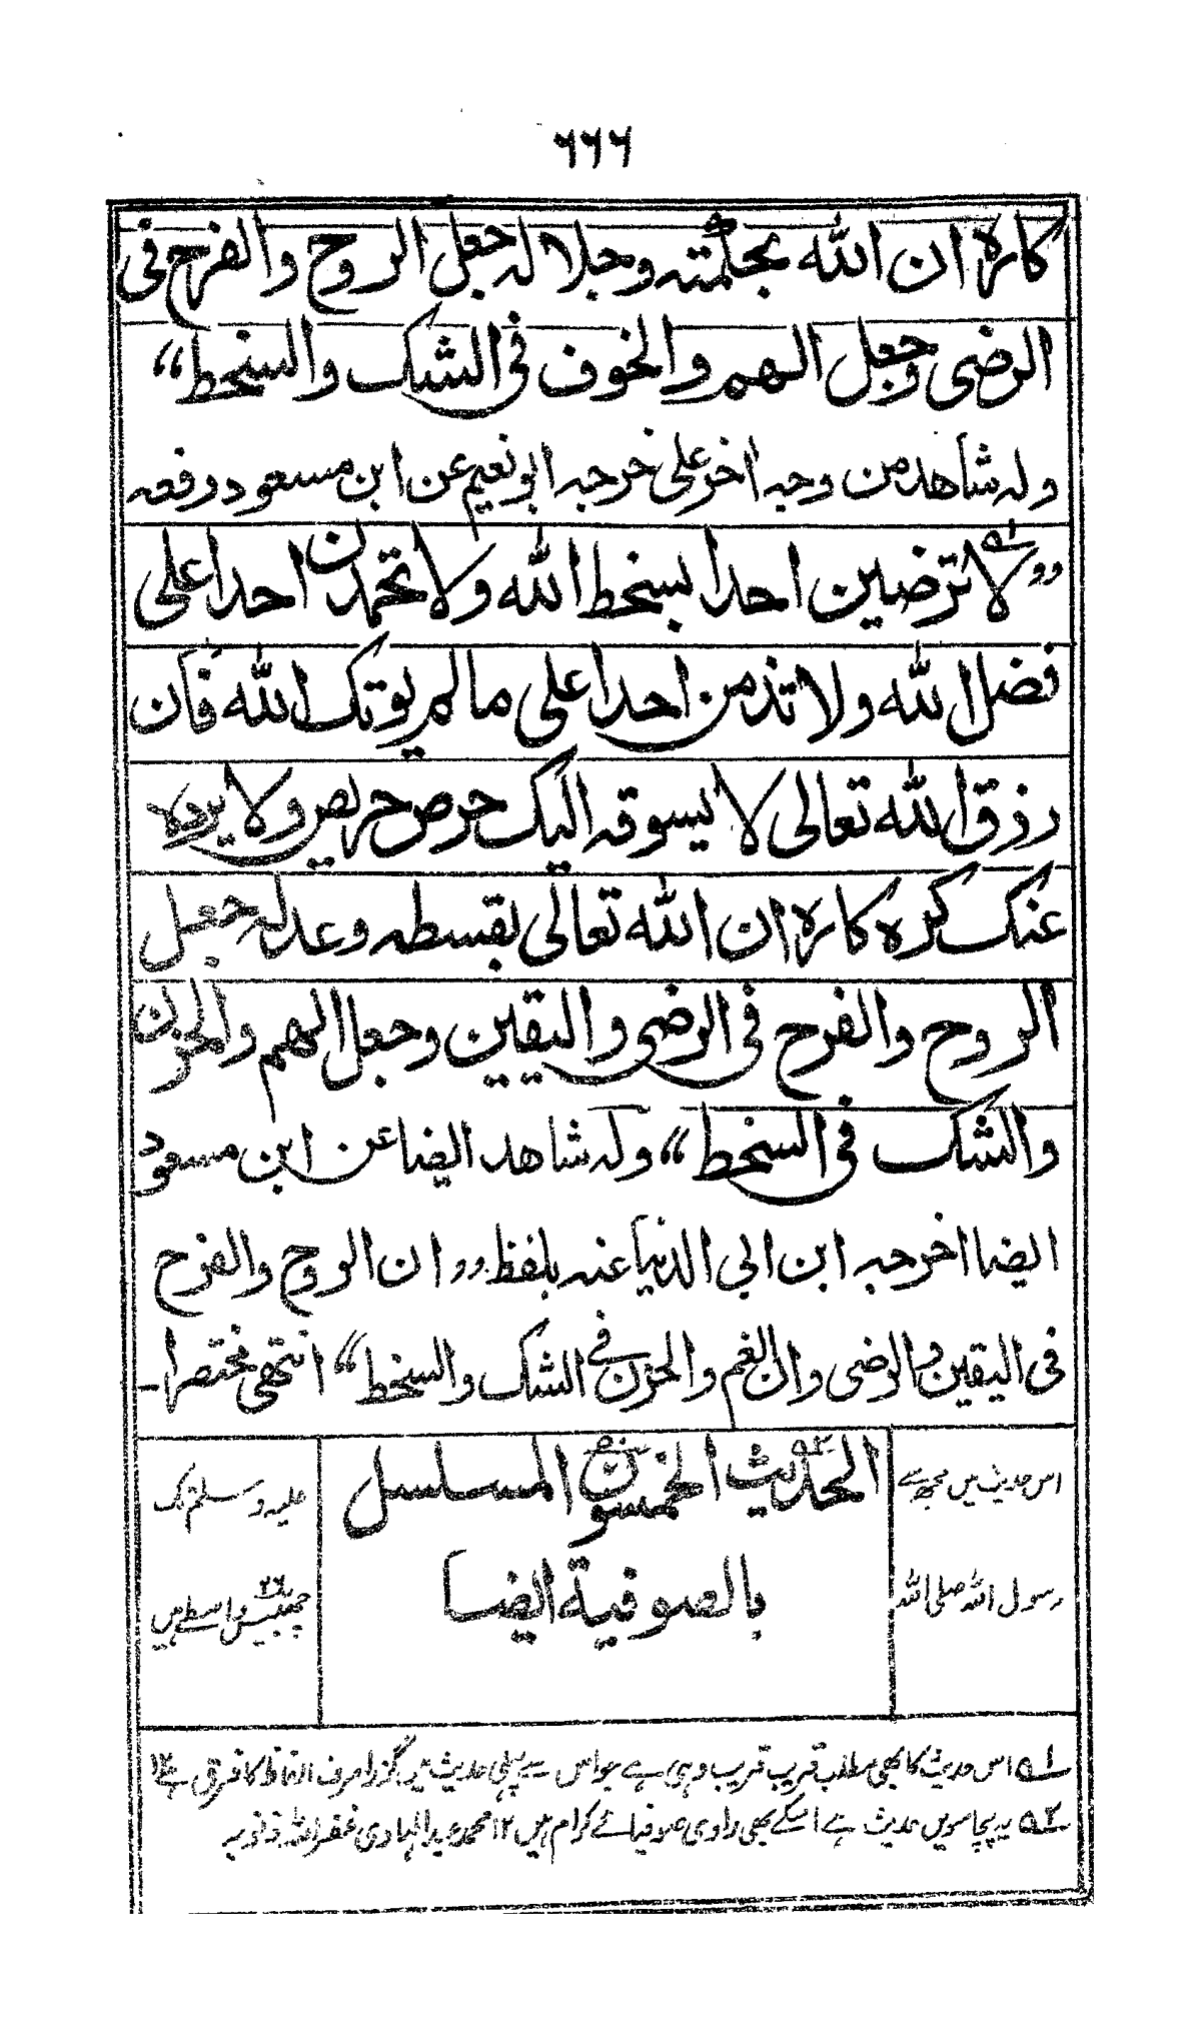 ۶۶۶
كاره ان الله بحكمته وجلاله جعل الروح والفرح فى
الرضى وجعل الهم والخوف فى الشك والسخط“
وله شاهد من وجه اخر على خرجه ابو نعيم عن ابن مسعود رفعه
”لا ترضين احدا بسخط الله ولا تحمدن احدا على
فضل الله ولا تذمن احدا على ما لم يوتك الله فان
رزق الله تعالى لا يسوقه اليك حرص حريص ولا يرده
عنك كره كاره ان الله تعالى بقسطه وعدله جعل
الروح والفرح فى الرضى واليقين وجعل الهم والحزن
والشك فى السخط“ وله شاهد ايضا عن ابن مسعود
ايضا اخرجه ابن ابى الدنيا عنه بلفظ ”ان الروح والفرح
فى اليقين والرضى وان الغم والحزن فى الشك والسخط“ انتهى مختصرا۔
الحديث الخمسون المسلسل
بالصوفية ايضا
اس حدیث میں مجھ سے
رسول اللہ صلی اللہ
علیہ وسلم تک
چھبیس ۲۶ واسطے ہیں
۱؎ اس حدیث کا بھی مطلب قریب قریب وہی ہے جو اس سے پہلی حدیث میں گزرا صرف الفاظ کا فرق ہے ۱۲
۲؎ یہ پچاسویں حدیث ہے اسکے بھی راوی صوفیائے کرام ہیں ۱۲ محمد عبد الہادی غفر اللہ ذنوبہ